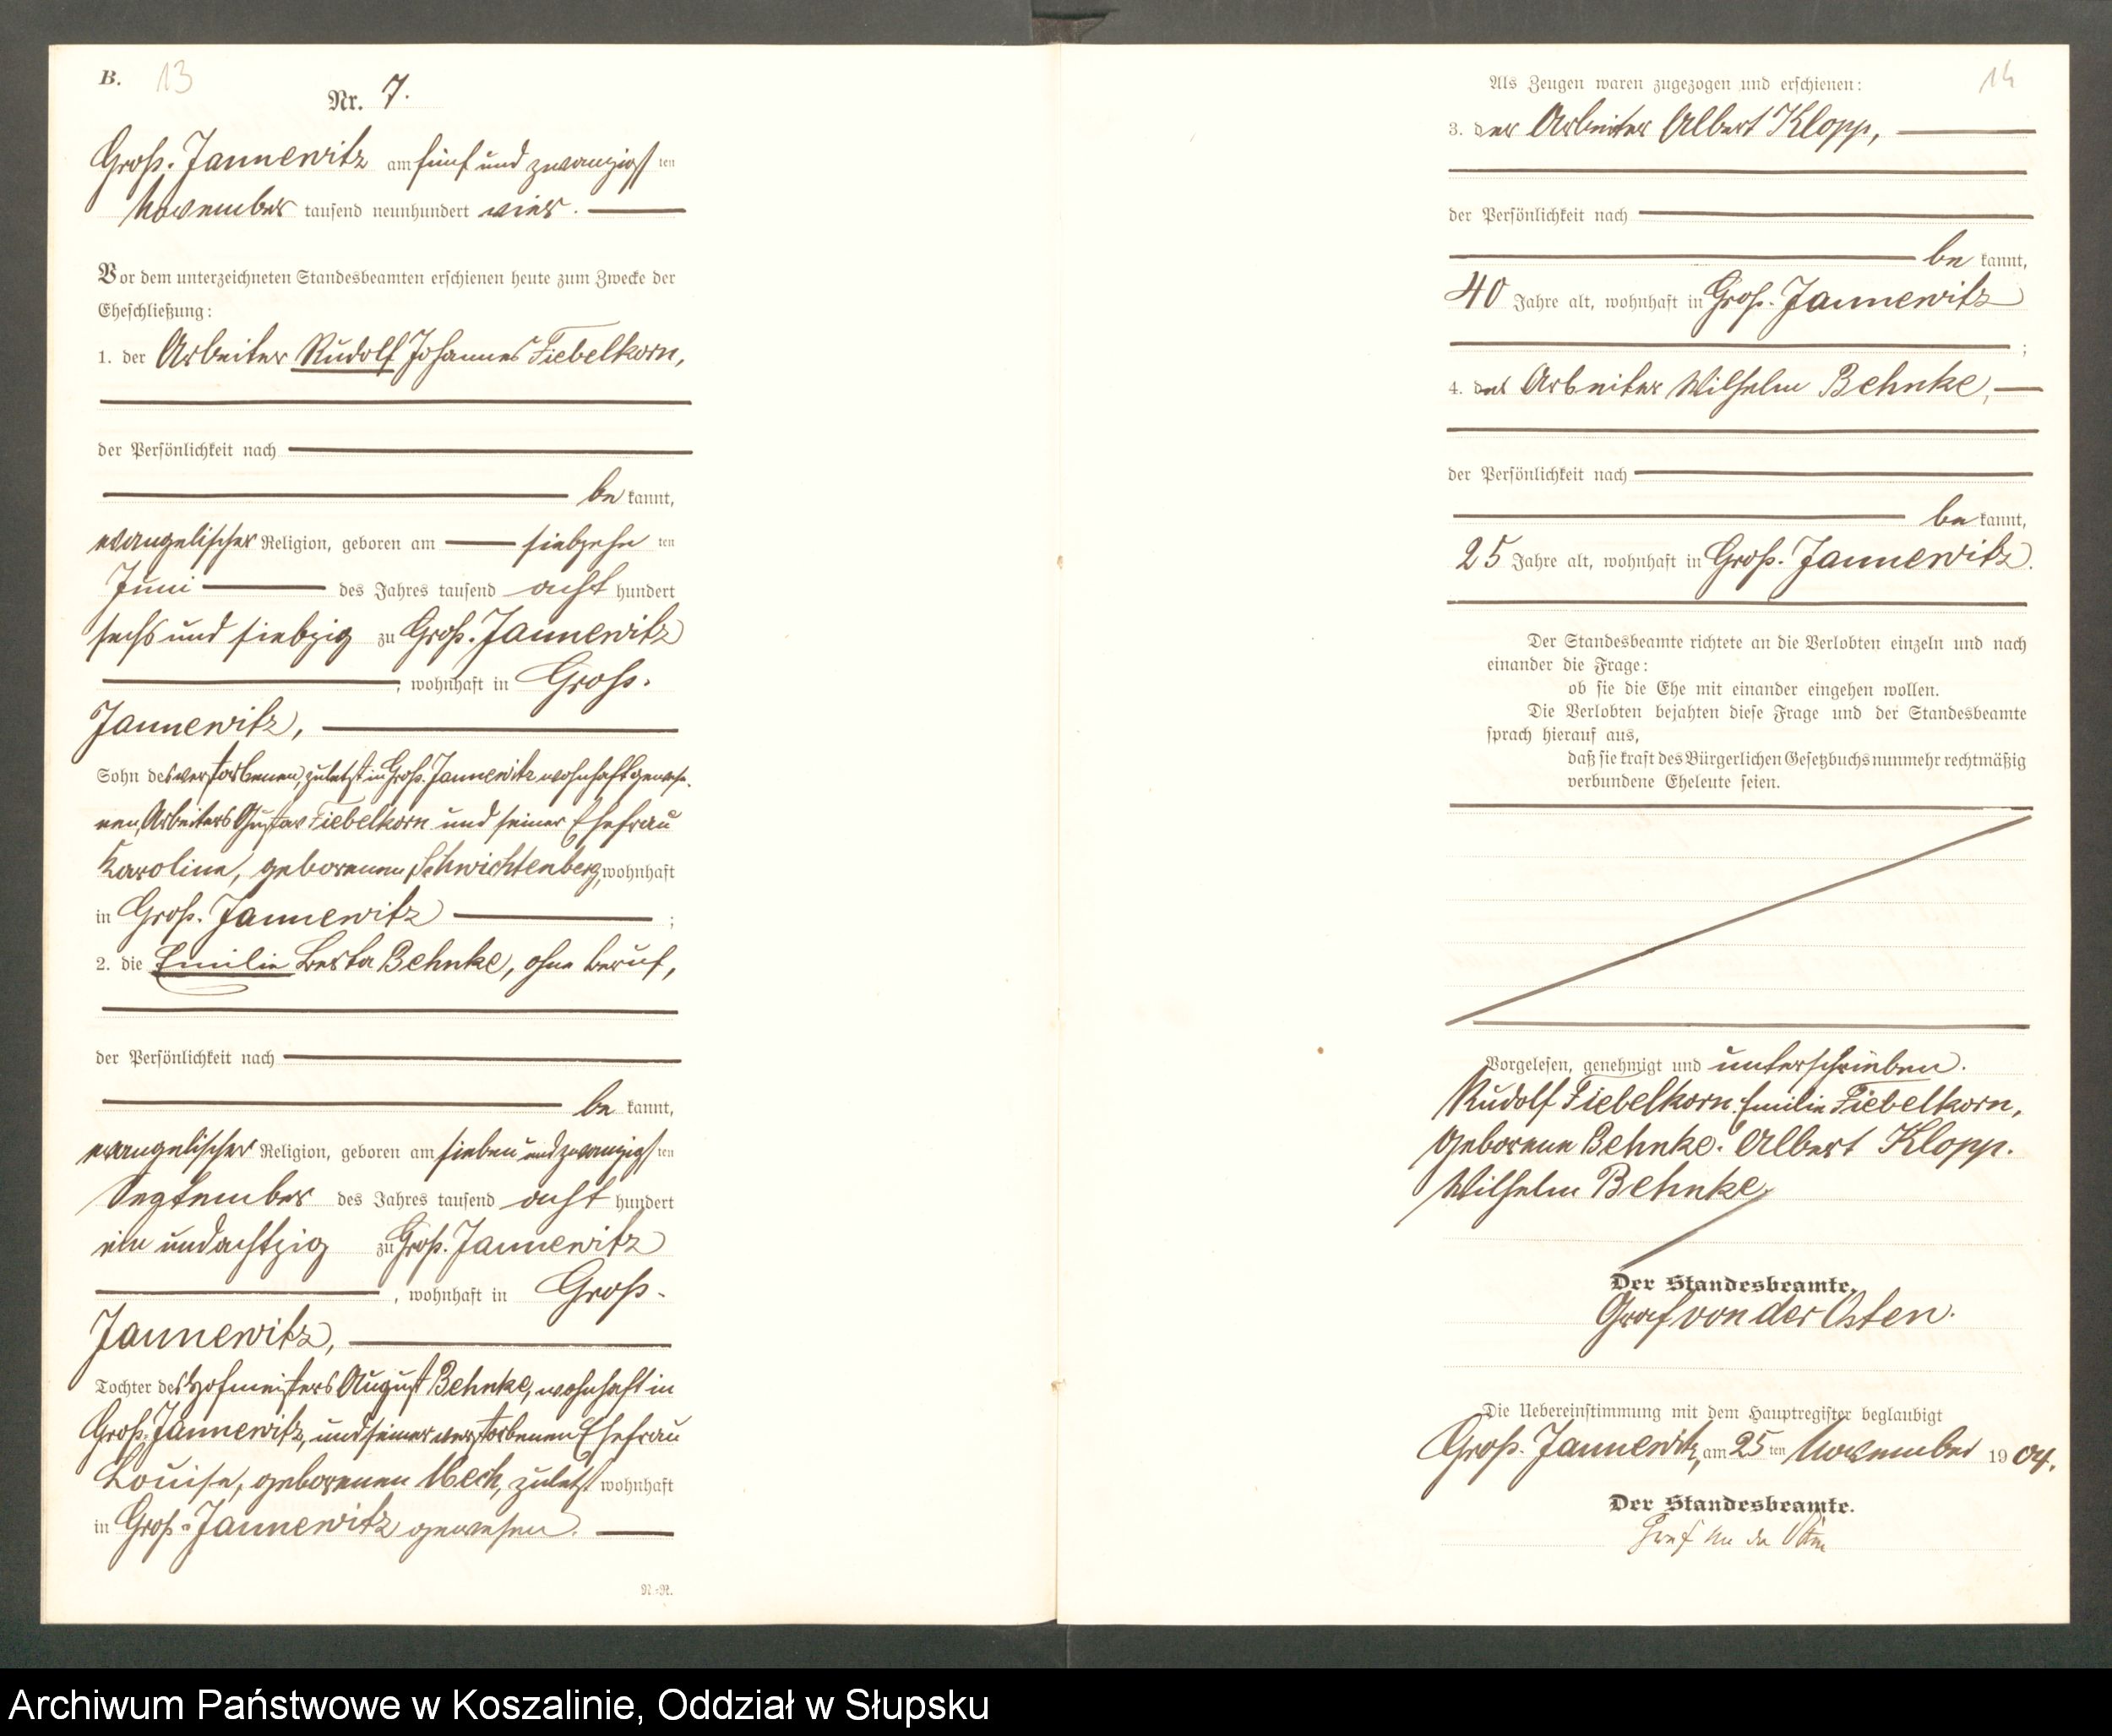 B. 13
Nr. 7.
Groß-Jannewitz am fünf und zwanzigsten
November tausend neunhundert vier.
Vor dem unterzeichneten Standesbeamten erschienen heute zum Zwecke der
Eheschließung:
1. der Arbeiter Rudolf Johannes Fiebelkorn,
der Persönlichkeit nach
bekannt,
evangelischer Religion, geboren am siebzehnten
Juni des Jahres tausend achthundert
sechs und siebzig zu Groß-Jannewitz
, wohnhaft in Groß-
Jannewitz,
Sohn des verstorbenen, zuletzt in Groß-Jannewitz wohnhaft gewese-
nen, Arbeiters Gustav Fiebelkorn und seiner Ehefrau
Karoline, geborenen Schwichtenberg, wohnhaft
in Groß-Jannewitz ;
2. die Emilie Berta Behnke, ohne Beruf,
der Persönlichkeit nach
bekannt,
evangelischer Religion, geboren am sieben und zwanzigsten
September des Jahres tausend achthundert
ein und achtzig zu Groß-Jannewitz
, wohnhaft in Groß-
Jannewitz,
Tochter des Hofmeisters August Behnke, wohnhaft in
Groß-Jannewitz, und seiner verstorbenen Ehefrau
Louise, geborenen zuletzt wohnhaft
in Groß-Jannewitz gewesen.
N.-R.
14
Als Zeugen waren zugezogen und erschienen:
3. der Arbeiter Albert Klopp,
der Persönlichkeit nach
bekannt,
40 Jahre alt, wohnhaft in Groß-Jannewitz
;
4. der Arbeiter Wilhelm Behnke,
der Persönlichkeit nach
bekannt,
25 Jahre alt, wohnhaft in Groß-Jannewitz.
Der Standesbeamte richtete an die Verlobten einzeln und nach
einander die Frage:
ob sie die Ehe mit einander eingehen wollen.
Die Verlobten bejahten diese Frage und der Standesbeamte
sprach hierauf aus,
daß sie kraft des Bürgerlichen Gesetzbuchs nunmehr rechtmäßig
verbundene Eheleute seien.
Vorgelesen, genehmigt und unterschrieben.
Rudolf Fiebelkorn. Emilie Fiebelkorn,
geborene Behnke. Albert Klopp.
Wilhelm Behnke.
Der Standesbeamte.
Graf von der Osten.
Die Uebereinstimmung mit dem Hauptregister beglaubigt
Groß-Jannewitz, am 25ten November 1904.
Der Standesbeamte.
Graf von der Osten
Archiwum Państwowe w Koszalinie, Oddział w Słupsku